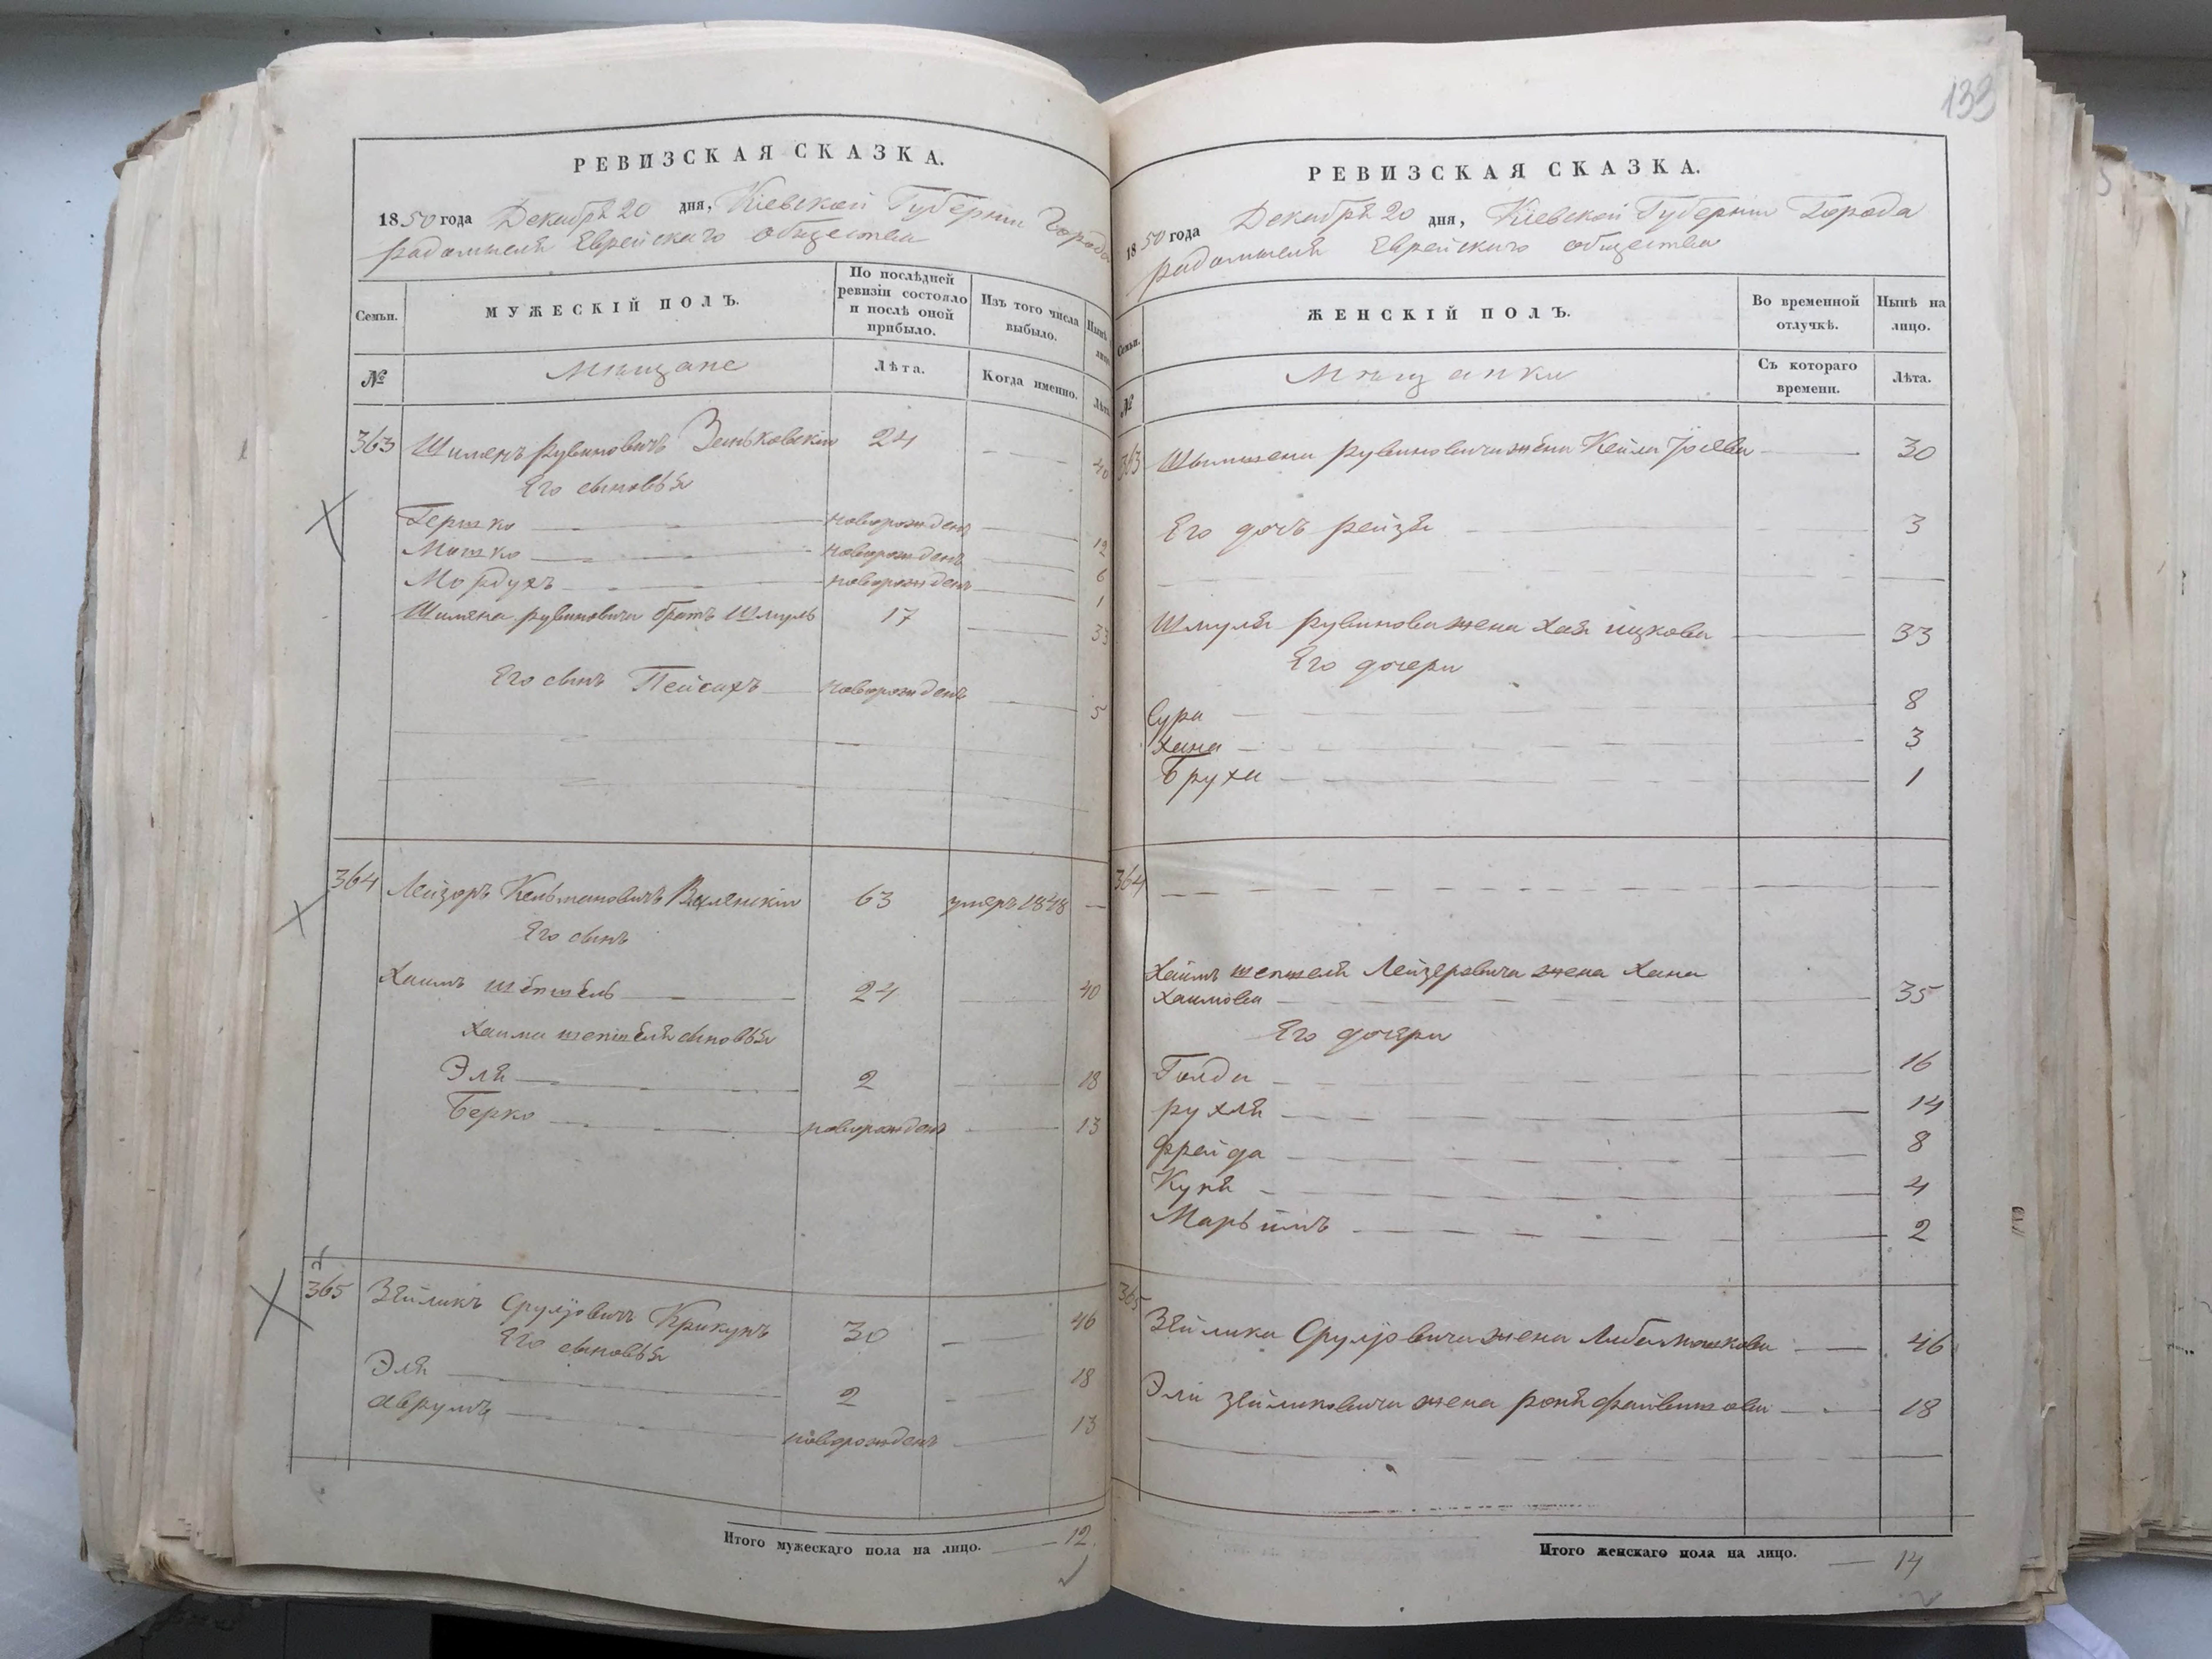 133
РЕВИЗСКАЯ СКАЗКА.
1850 года Декабря 20 дня, Кіевской Губерніи Города
Радомысля Еврейскаго общества
Семьи.
МУЖЕСКІЙ ПОЛЪ.
По послѣдней
ревизіи состояло
и послѣ оной
прибыло.
Изъ того числа
выбыло.
№
Мѣщане
Лѣта.
Когда именно.
363 Шимонъ Рувиновичъ Зеньковскій 24 40
Его сыновья
Гершко новорожденъ 12
Мошко новорожденъ 6
Мордухъ новорожденъ 1
Шимона Рувиновича братъ Шмуль 17 33
Его сынъ Пейсахъ новорожденъ 5
364 Лейзоръ Кельмановичъ Виленскій 63 умеръ 1848
Его сынъ
Хаимъ Шепшель 24 40
Хаима Шепшеля сыновья
Эля 2 18
Берко новорожденъ 13
365 Зейликъ Сруліовичъ Крикунъ 30 46
Его сыновья
Эля 2 18
Аврумъ новорожденъ 13
Итого мужескаго пола на лицо. 12.
РЕВИЗСКАЯ СКАЗКА.
1850 года Декабря 20 дня, Кіевской Губерніи Города
Радомысля Еврейскаго общества
Семьи.
ЖЕНСКІЙ ПОЛЪ.
Во временной
отлучкѣ.
Нынѣ на
лицо.
№
Мѣщанки
Съ котораго
времени.
Лѣта.
363 Рувиновича жена Кейла 30
Его дочь Рейзя 3
Шмуля Рувинова жена Хая Ицкова 33
Его дочери
Сура 8
Хана 3
Бруха 1
364
Хаимъ Шепшеля Лейзеровича жена Хана
Хаимова 35
Его дочери
Голда 16
Рухля 14
Фрейда 8
Куня 4
Марьимъ 2
365
Зейлика Сруліовича жена Либа Мошкова 46
Эли Зейликовича жена 18
Итого женскаго пола на лицо. 14